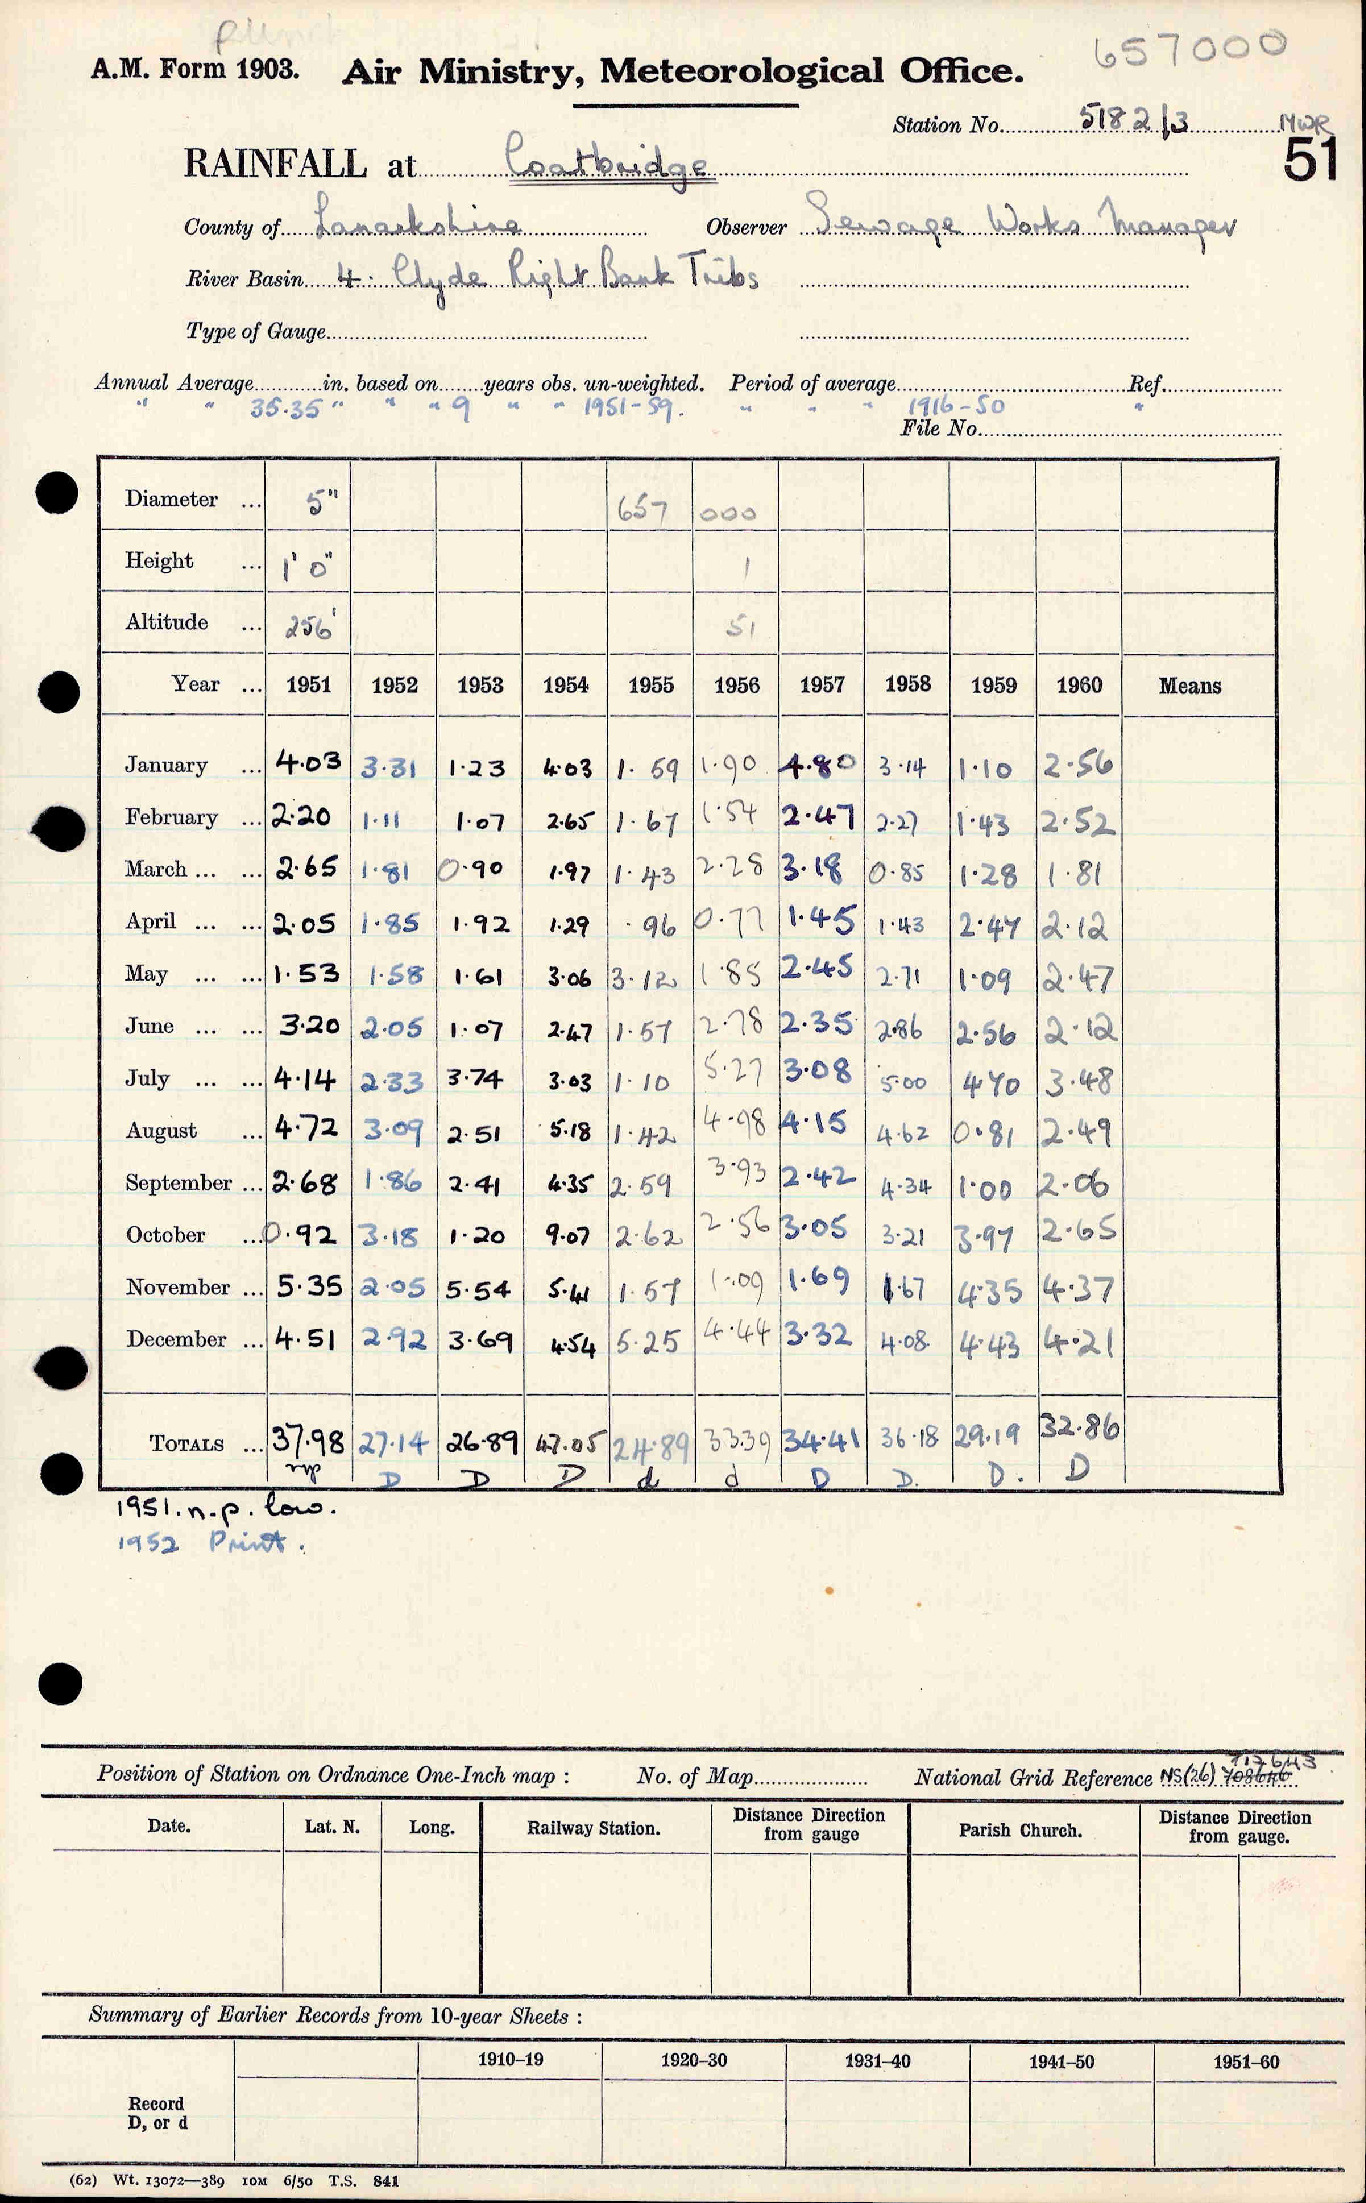 657000
A.M. Form 1903. Air Ministry, Meteorological Office.
Station No. 5182/3 MWR
51
RAINFALL at Coatbridge
County of Lanarkshire Observer Sewage Works Manager
River Basin 4. Clyde Right Bank Tribs
Type of Gauge
Annual Average in. based on years obs. un-weighted. Period of average Ref.
" " 35.35 " " " 9 " " 1951-59. " " " 1916-50 "
File No.
Diameter ... 5" 657 000
Height ... 1' 0" 1
Altitude ... 256' 51
Year ... 1951 1952 1953 1954 1955 1956 1957 1958 1959 1960 Means
January ... 4.03 3.31 1.23 4.03 1.59 1.90 4.80 3.14 1.10 2.56
February ... 2.20 1.11 1.07 2.65 1.67 1.54 2.47 2.27 1.43 2.52
March ... ... 2.65 1.81 0.90 1.97 1.43 2.28 3.18 0.85 1.28 1.81
April ... ... 2.05 1.85 1.92 1.29 .96 0.77 1.45 1.43 2.47 2.12
May ... ... 1.53 1.58 1.61 3.06 3.12 1.85 2.45 2.71 1.09 2.47
June ... ... 3.20 2.05 1.07 2.47 1.57 2.78 2.35 2.86 2.56 2.12
July ... ... 4.14 2.33 3.74 3.03 1.10 5.27 3.08 5.00 4.70 3.48
August ... 4.72 3.09 2.51 5.18 1.42 4.98 4.15 4.62 0.81 2.49
September ... 2.68 1.86 2.41 4.35 2.59 3.93 2.42 4.34 1.00 2.06
October ... 0.92 3.18 1.20 9.07 2.62 2.56 3.05 3.21 3.97 2.65
November ... 5.35 2.05 5.54 5.41 1.57 1.09 1.69 1.67 4.35 4.37
December ... 4.51 2.92 3.69 4.54 5.25 4.44 3.32 4.08 4.43 4.21
TOTALS ... 37.98 27.14 26.89 47.05 24.89 33.39 34.41 36.18 29.19 32.86
np D D D d d D D. D. D
1951. n.p. low.
1952 Print.
Position of Station on Ordnance One-Inch map : No. of Map National Grid Reference NS(26) 708646 717643
Date. Lat. N. Long. Railway Station. Distance from gauge Direction Parish Church. Distance from gauge. Direction
Summary of Earlier Records from 10-year Sheets :
1910-19 1920-30 1931-40 1941-50 1951-60
Record
D, or d
(62) Wt. 13072—389 10M 6/50 T.S. 841